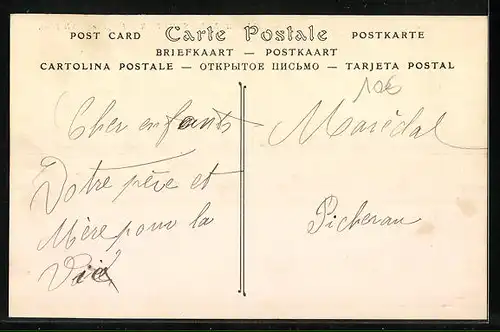 POST CARD Carte Postale POSTKARTE
BRIEFKAART — POSTKAART
CARTOLINA POSTALE — ОТКРЫТОЕ ПИСЬМО — TARJETA POSTAL
106
Cher enfants
Votre père et
Mère pour la
Vie
Marédal
Picherau